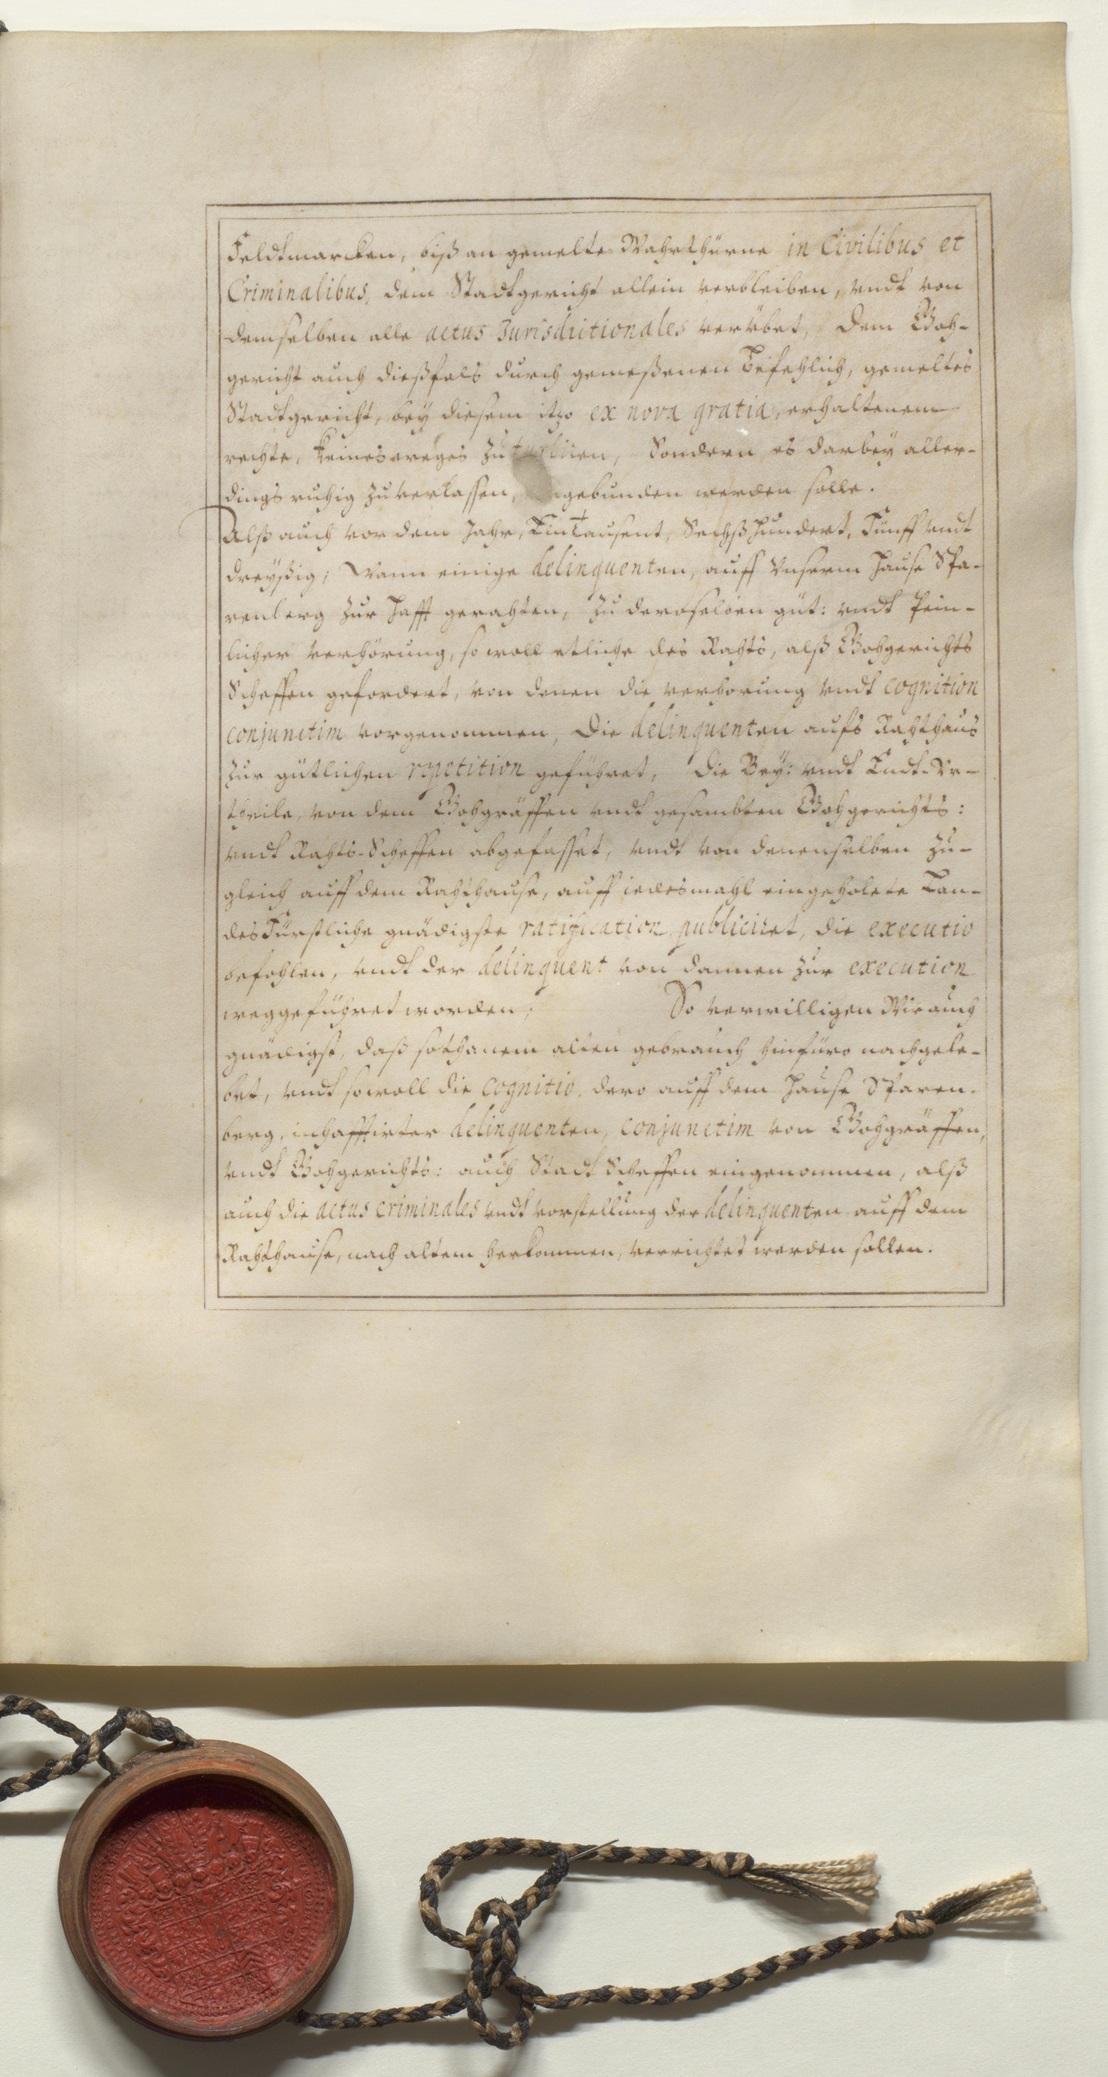 Feldtmarcken, biß an gemelte Wahrthürne in Civilibus et
Criminalibus, dem Stadtgericht allein verbleiben, undt von
demselben alle actus Jurisdictionales verübet, Dem Goh-
gericht auch dießfals durch gemeßenen Befehlich, gemeltes
Stadtgericht, bey diesem itzo ex nova gratia, erhaltenem
rechte, keinesweges zu turbiren, Sondern es darbey aller-
dings ruhig zu verlassen, gebunden werden solle.
Alß auch vor dem Jahr, EinTausent, Sechßhundert, Fünff undt
dreyßig, Wann einige delinquenten, auff Unserm Hause Spa-
renberg zur Hafft gerahten, zu deroselben güt: undt Pein-
licher verhörung, so woll etliche des Rahts, alß Gohgerichts
Scheffen gefordert, von denen die verhörung undt cognition
conjunctim vorgenommen, Die delinquenten aufs Rahthaus
zur gütlichen repetition geführet, die Bey: undt Endt-Ur-
theile, von dem Gohgräffen undt gesambten Gohgerichts:
undt Rahts-Scheffen abgefasset, undt von denenselben zu-
gleich auff dem Rahthause, auff iedesmahl eingeholete Lan-
desFürstliche gnädigste ratification, publiciret, die executio
befohlen, undt der delinquent von dannen zur execution
weggeführet worden; So verwilligen Wir auch
gnädigst, daß sothanem alten gebrauch hinfüro nachgele-
bet, undt sowoll die cognitio, dero auff dem Hause Sparen-
berg, inhafftirter delinquenten, conjunctim von Gohgräffen,
undt Gohgerichts: auch Stadt Scheffen eingenommen, alß
auch die actus criminales undt vorstellung der delinquenten auff dem
Rahthause, nach altem herkommen, verrichtet werden sollen.